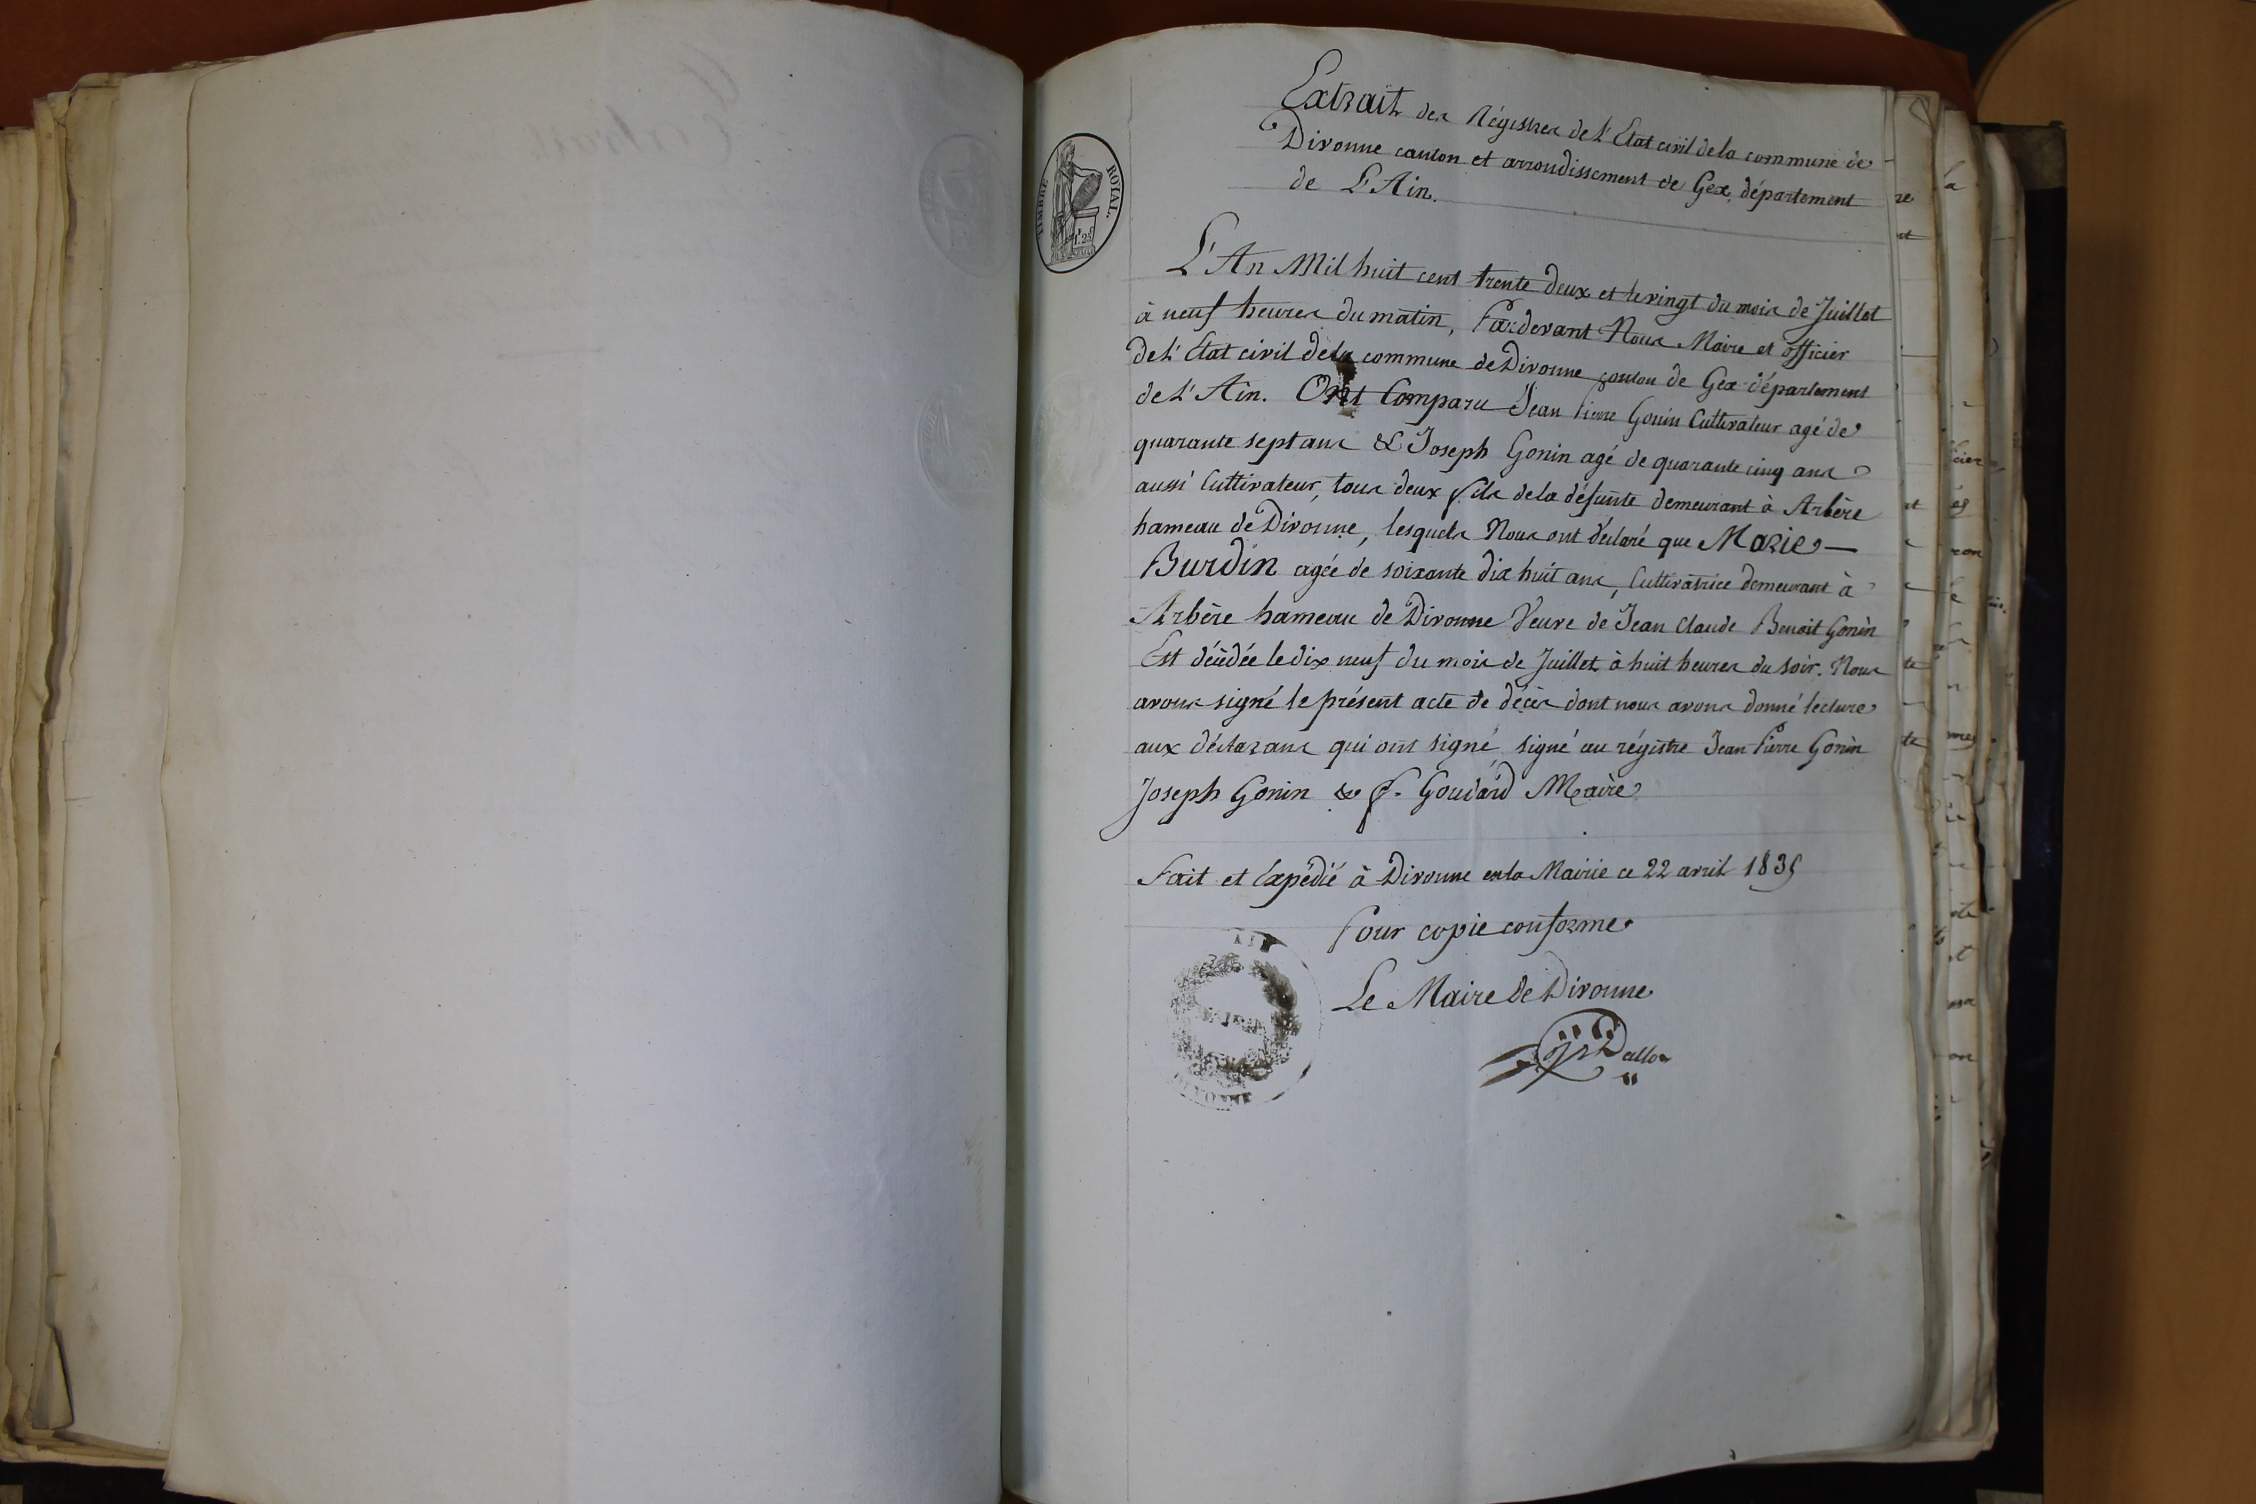 Extrait des Régistres de L'Etat civil de la commune de
Divonne canton et arrondissement de Gex, département
de L'Ain.
TIMBRE ROYAL.
L'An Mil huit cent trente deux et le vingt du mois de Juillet
à neuf heures du matin, Pardevant Nous Maire et officier
de L'Etat civil de la commune de Divonne canton de Gex département
de L'Ain. Ont Comparu Jean Pierre Gonin Cultivateur agé de
quarante sept ans & Joseph Gonin agé de quarante cinq ans
aussi Cultivateur, tous deux fils de la défunte demeurant à Arbère
hameau de Divonne, lesquels Nous ont déclaré que Marie —
Burdin agée de soixante dix huit ans, Cultivatrice demeurant à
Arbère hameau de Divonne Veuve de Jean Claude Benoit Gonin
Est décédée le dix neuf du mois de Juillet à huit heures du soir. Nous
avons signé le présent acte de décès dont nous avons donné lecture
aux déclarans qui ont signé, signé au régistre Jean Pierre Gonin
Joseph Gonin & f. Goudard Maire
Fait et Expédié à Divonne en la Mairie ce 22 avril 1835
Pour copie conforme
Le Maire de Divonne
AIN
DIVONNE